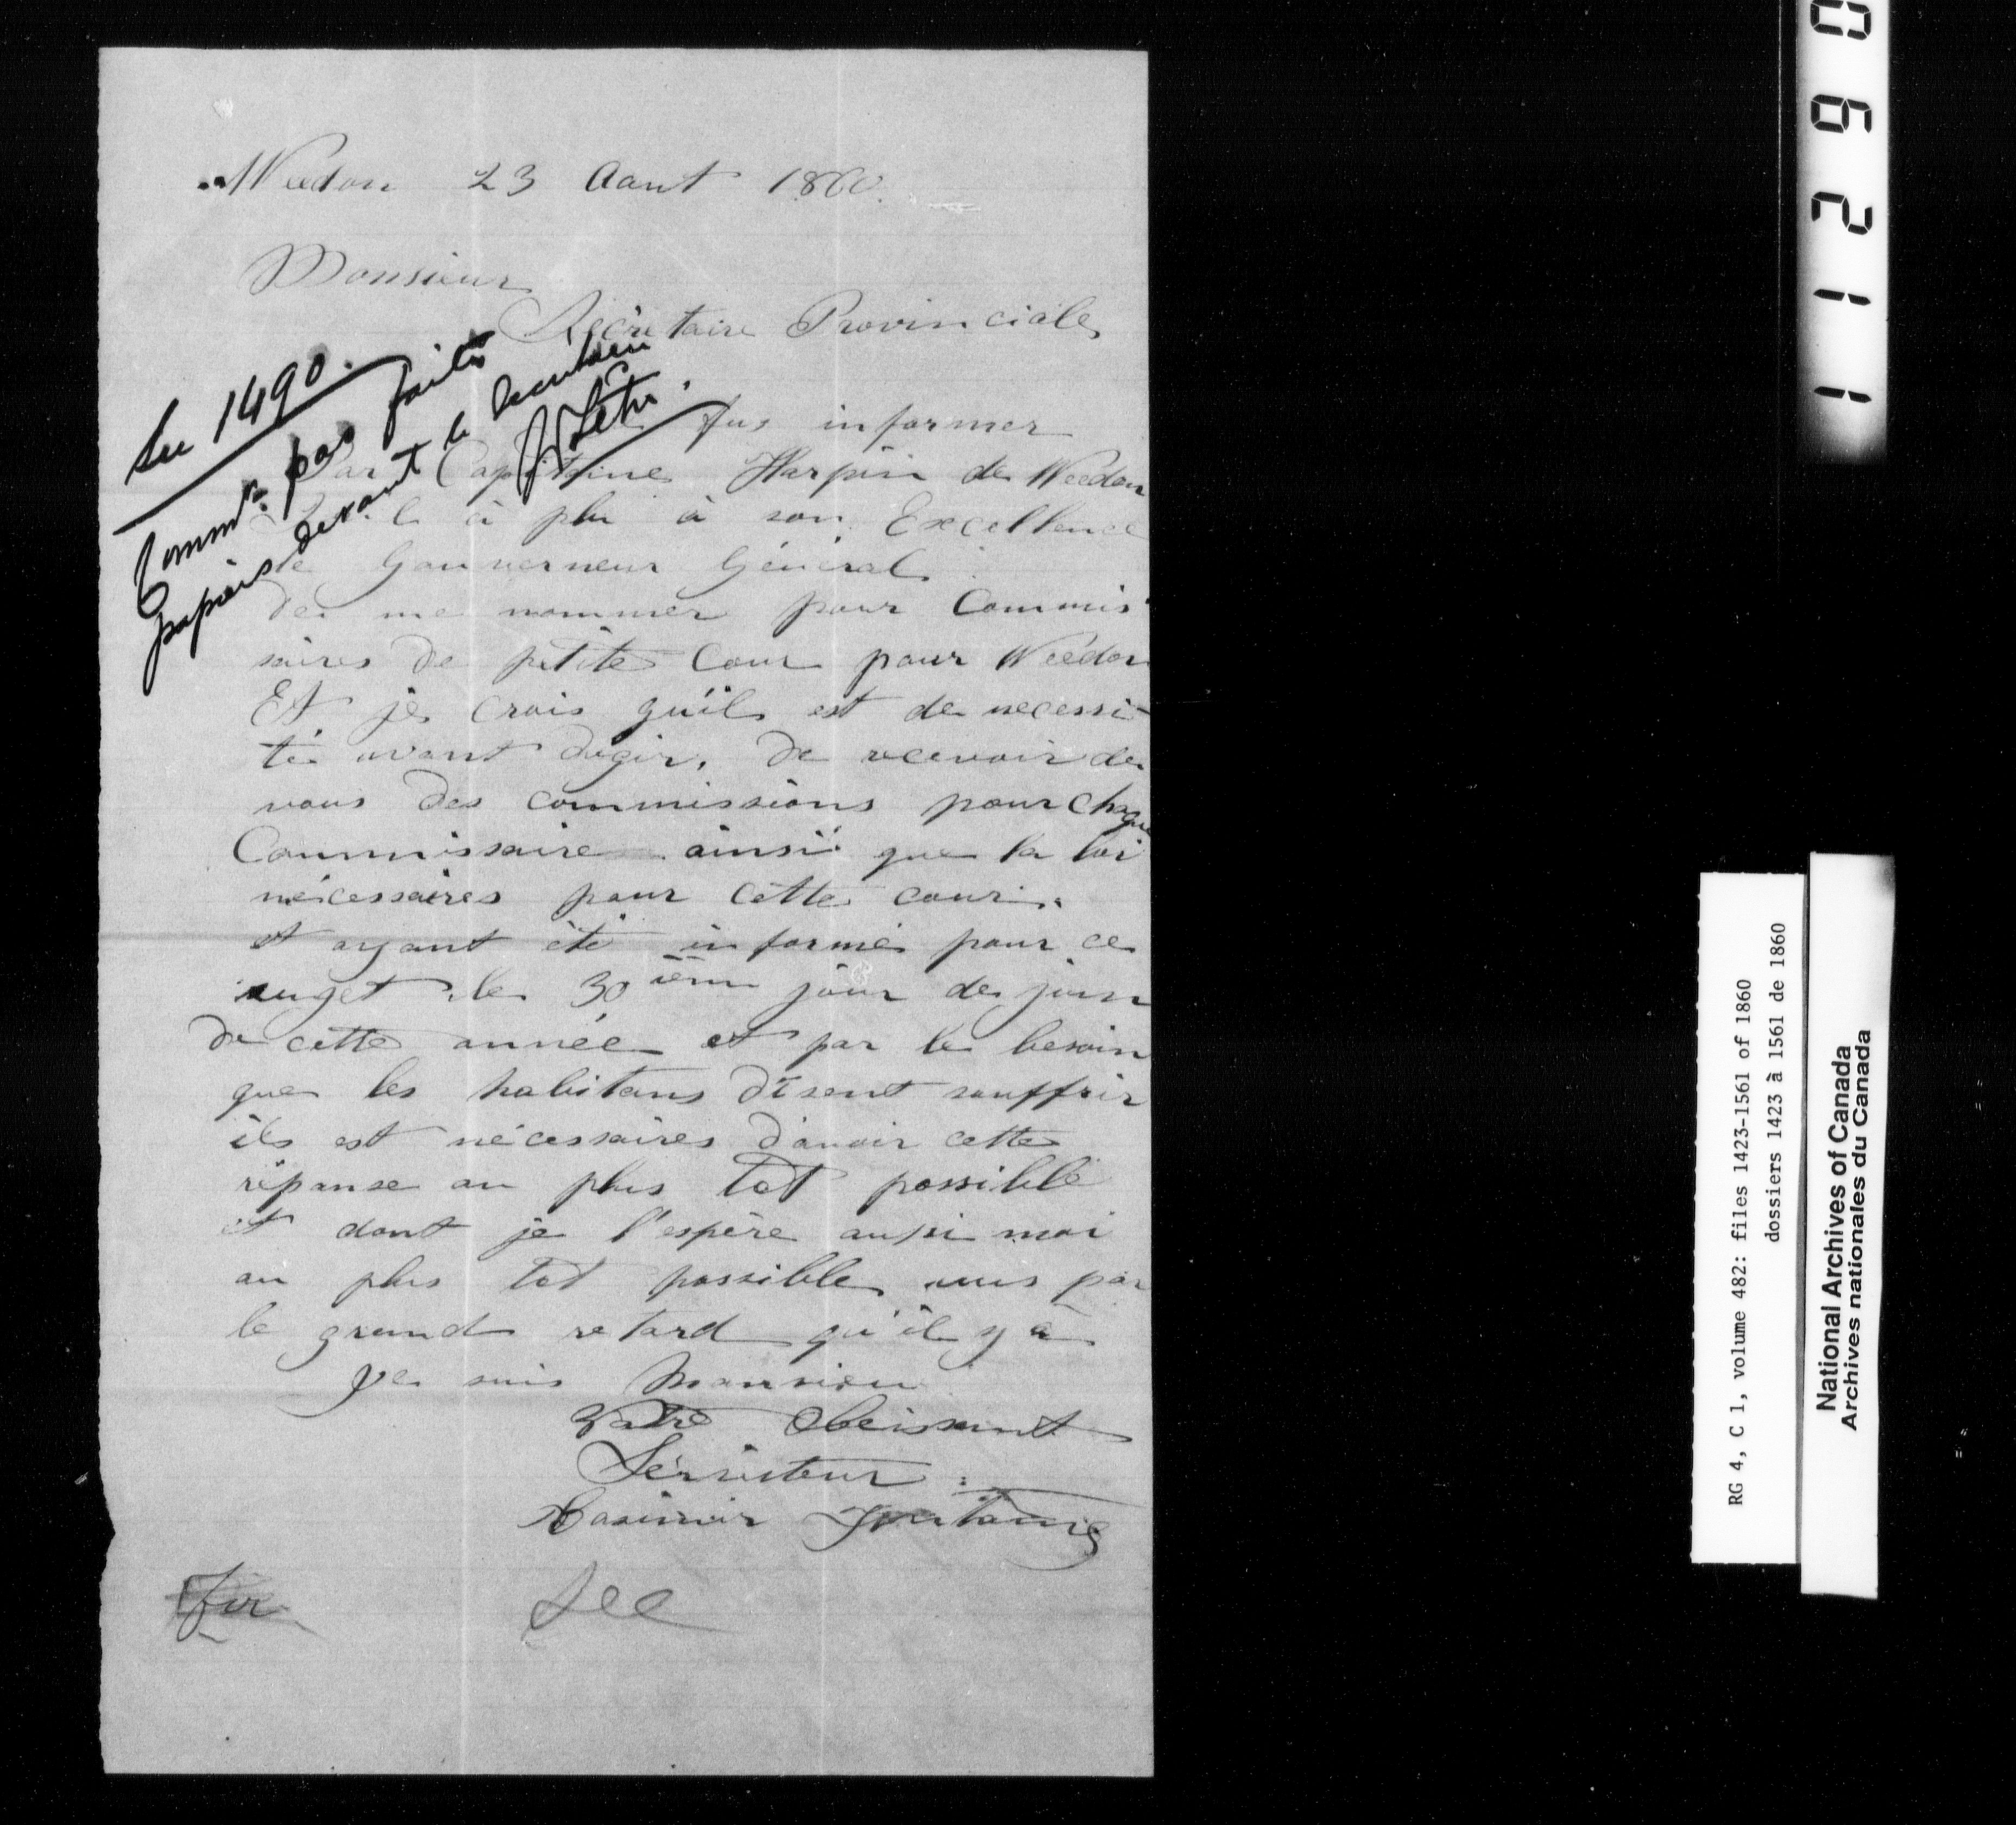 Weedon 23 Aout 1860.
Monsieur
Sécretaire Provinciale
See 1490.
Comm.n pas faite
papiers devant le Secretaire
fus informer
Par Capitaine Harpin de Weedon
à plu à son Excellence
le Gouverneur Général
de me nommer pour Commis
saires de petite Cour pour Weedon
Et je crois qu'il est de necessi-
té avant dagir, de recevoir de
vous des commissions pour chaque
Commissaire ainsi que la loi
nécessaires pour cette cour.
et ayant été informé pour ce
suget le 30 ième jour de juin
de cette année et par le besoin
que les habitans disent souffrir
ils est nécessaires d'avoir cette
réponse au plus tot possible
et dont je l'espère aussi moi
au plus tot possible vus par
le grand retard qu'il y a
Je suis Monsieu
Votre Obeissant
Serviteur
Casimir Fontaine
See
11290
RG 4, C 1, volume 482: files 1423-1561 of 1860
dossiers 1423 à 1561 de 1860
National Archives of Canada
Archives nationales du Canada